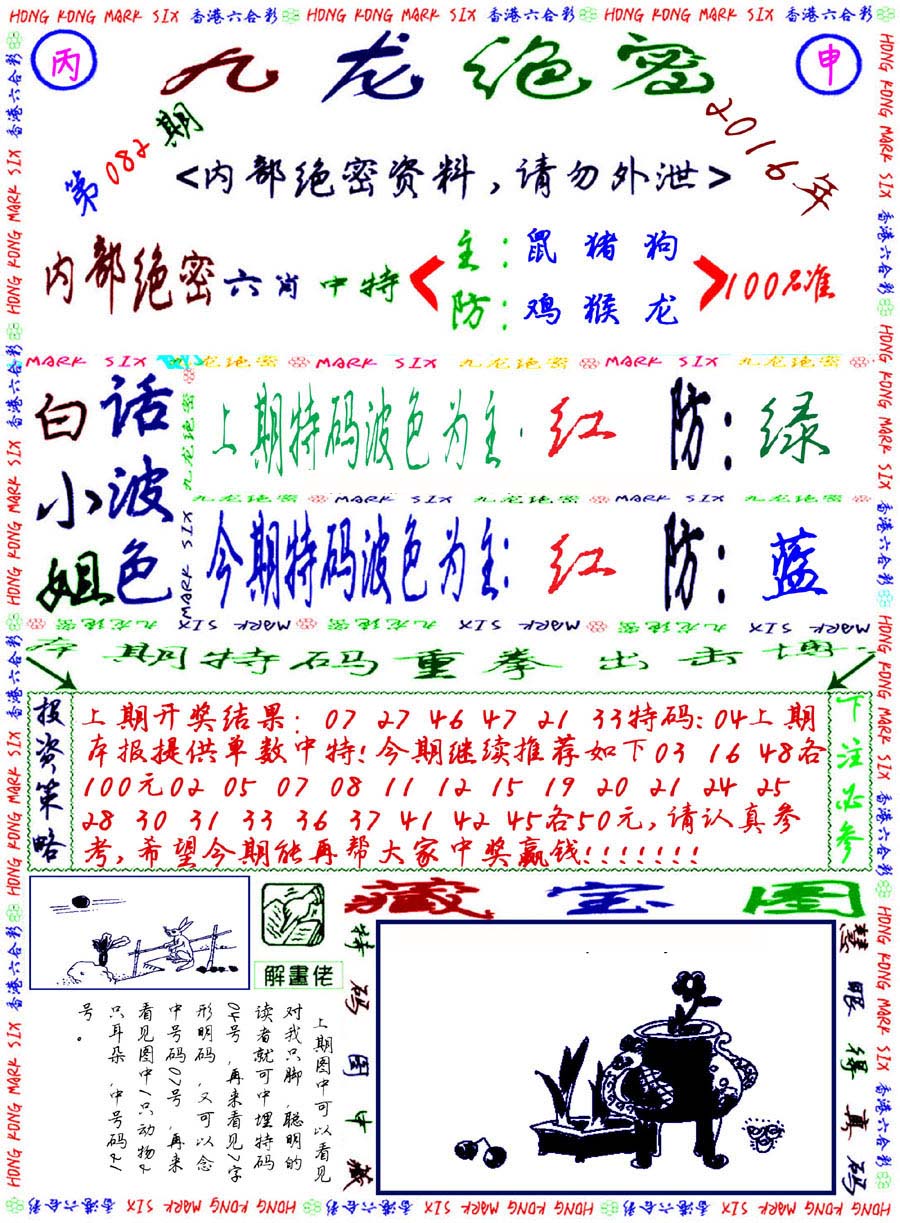 HONG KONG MARK SIX 香港六合彩 HONG KONG MARK SIX 香港六合彩 HONG KONG MARK SIX 香港六合彩
丙
九龙绝密
申
第082期
2016年
<内部绝密资料,请勿外泄>
内部绝密六肖中特
主:鼠猪狗
防:鸡猴龙
100%准
MARK SIX 九龙绝密 MARK SIX 九龙绝密 MARK SIX 九龙绝密
白话
小波
姐色
上期特码波色为主:红 防:绿
九龙绝密 MARK SIX 九龙绝密 MARK SIX 九龙绝密
今期特码波色为主:红 防:蓝
MARK SIX 九龙绝密 MARK SIX 九龙绝密 MARK SIX 九龙绝密
本期特码重拳出击博
投资策略
上期开奖结果:07 27 46 47 21 33特码:04上期
本报提供单数中特!今期继续推荐如下03 16 48各
100元02 05 07 08 11 12 15 19 20 21 24 25
28 30 31 33 36 37 41 42 45各50元,请认真参
考,希望今期能再帮大家中奖赢钱!!!!!!!
下注必参
藏宝图
解畫佬
上期图中可以看见
对我只脚,聪明的
读者就可中埋特码
04号,再来看见7字
形明码,又可以念
中号码07号,再来
看见图中1只动物2
只耳朵,中号码21
号。
特码图中藏
慧眼得真码
HONG KONG MARK SIX 香港六合彩 HONG KONG MARK SIX 香港六合彩 HONG KONG MARK SIX 香港六合彩